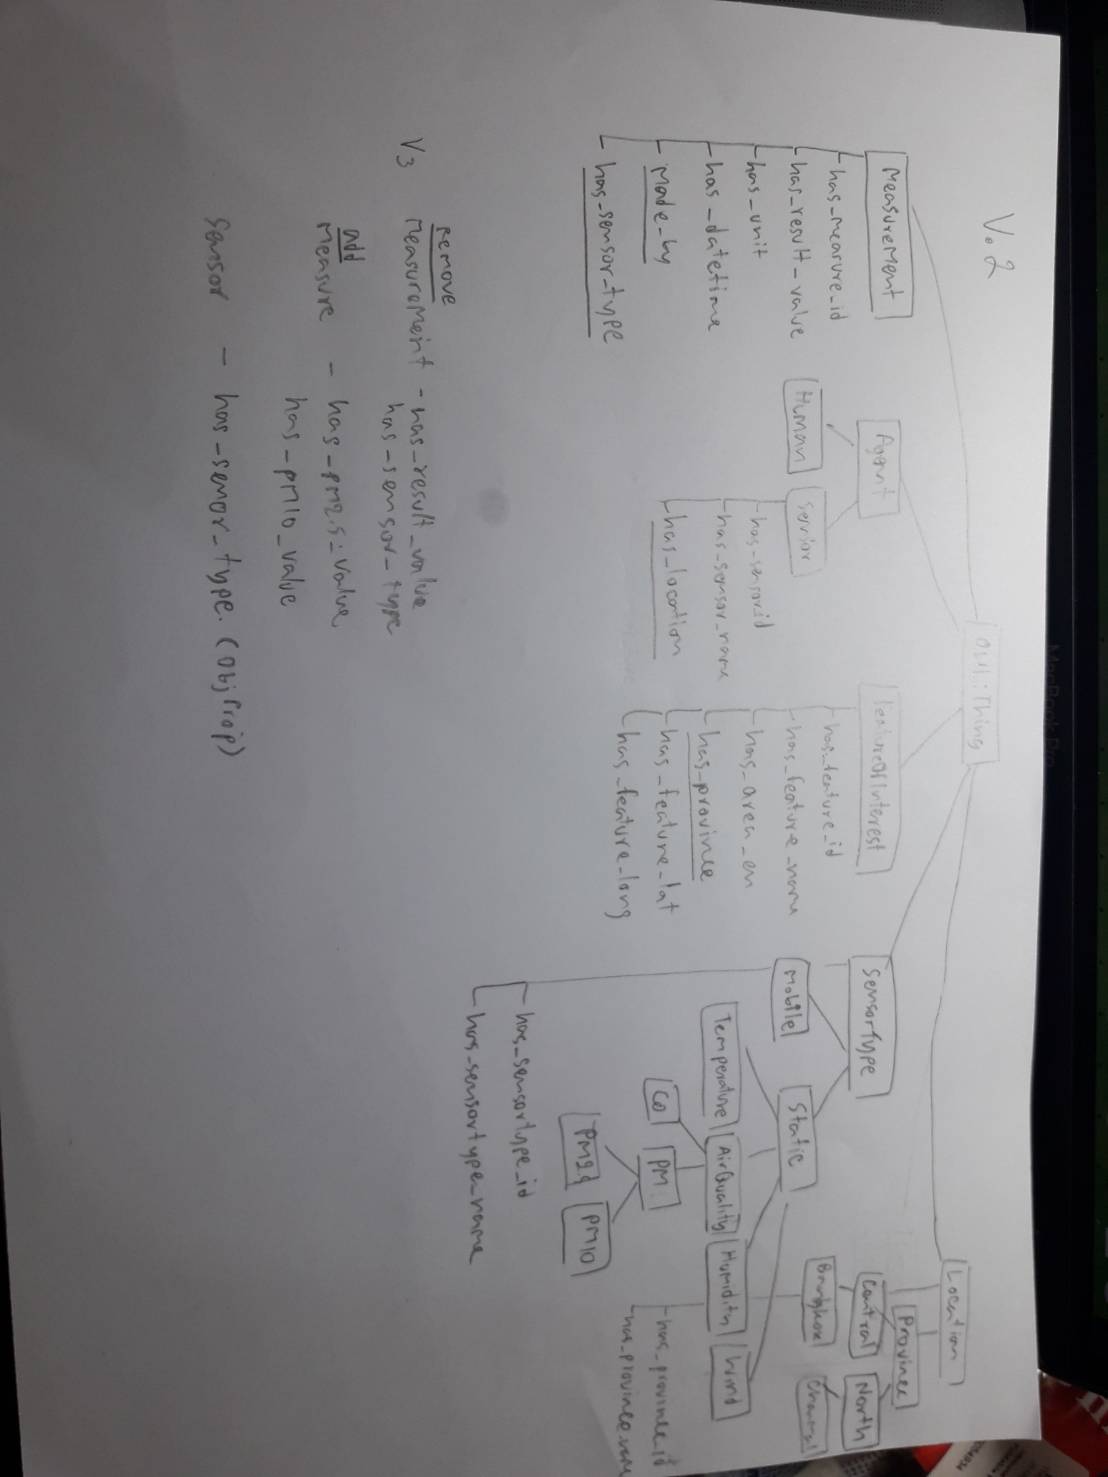 V.2
OWL:Thing
Measurement
has_mearure_id
has_result-value
has_unit
has_datetime
Made_by
has_sensor_type
Agent
Human
Sensor
has_sensorid
has_sensor_name
has_location
featureOfInterest
has_feature_id
has_feature_name
has_area_en
has_province
has_feature_lat
has_feature_long
SensorType
Mobile
Static
Temperature
AirQuality
Humidity
Wind
CO
PM
PM10
has_sensortype_id
has_sensortype_name
Location
Province
Central
North
has_province_id
V3
remove
Measurement - has_result_value
has_sensor_type
add
Measure - has_PM2.5_value
has_PM10_value
Sensor - has_senor_type. (Obj Prop)
MacBook Pro